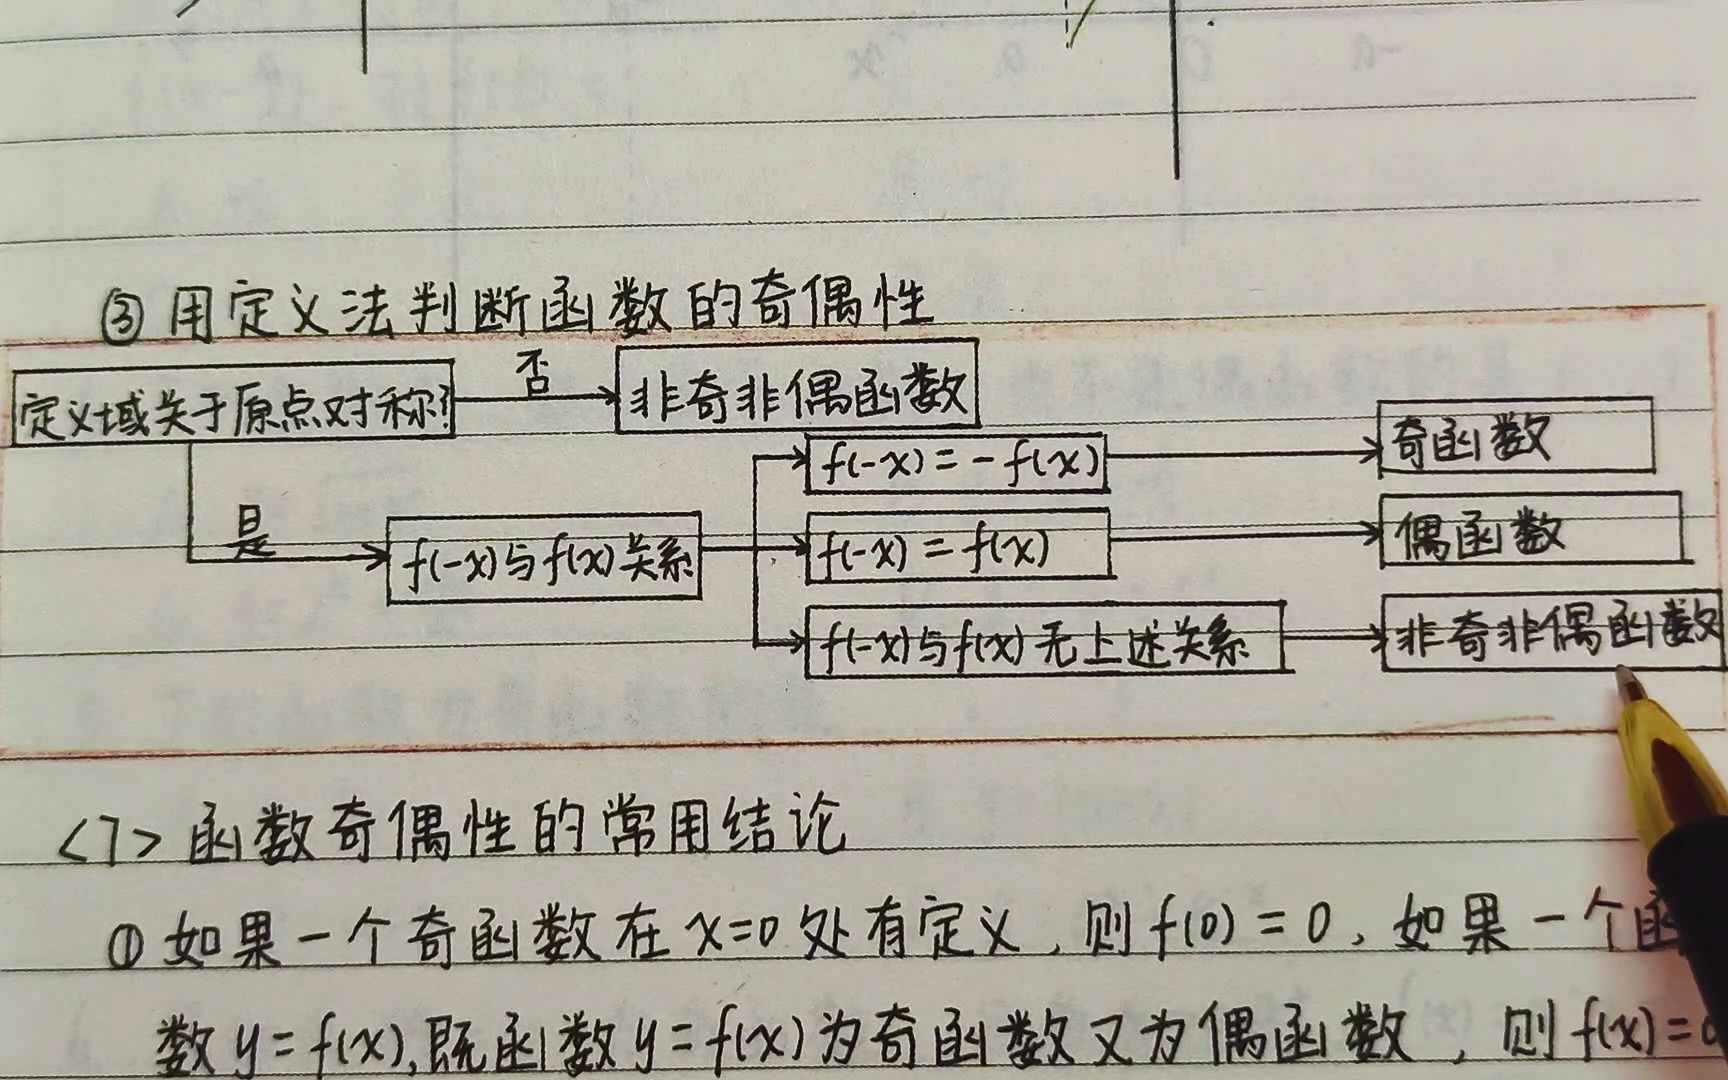 ③用定义法判断函数的奇偶性
定义域关于原点对称?
否
非奇非偶函数
是
f(-x)与f(x)关系
f(-x)=-f(x)
奇函数
f(-x)=f(x)
偶函数
f(-x)与f(x)无上述关系
非奇非偶函数
<7>函数奇偶性的常用结论
①如果一个奇函数在x=0处有定义,则f(0)=0,如果一个函
数y=f(x),既函数y=f(x)为奇函数又为偶函数,则f(x)=0